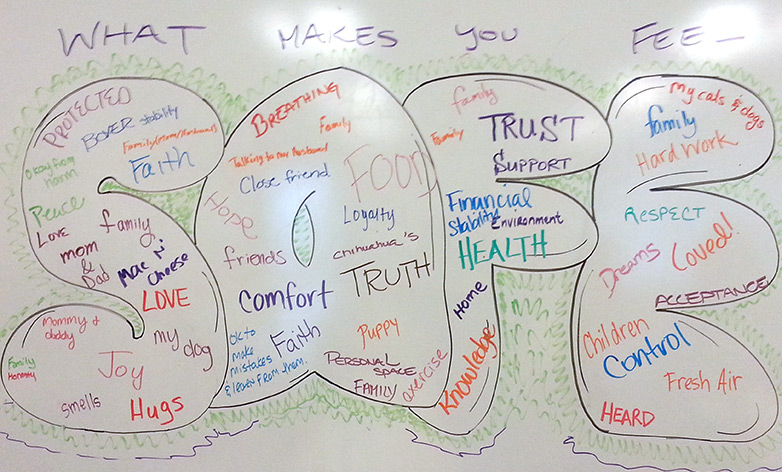 WHAT MAKES YOU FEEL
PROTECTED
BOXER stability
Family (mom/Husband)
Faith
Okay from
harm
Peace
LOVE
family
mom
&
Dad
Mac N'
Cheese
LOVE
Mommy &
daddy
my
dog
Family
Honesty
Joy
smells
Hugs
BREATHING
Family
Talking to my Husband
Close friend
FOOD
Hope
Loyalty
friends
chihuahua's
TRUTH
Comfort
OK to
make
mistakes
& learn from them.
Faith
Puppy
PERSONAL
SPACE
FAMILY
exercise
family
Family
TRUST
&
SUPPORT
Financial
stability
Environment
HEALTH
Home
Knowledge
my cats & dogs
family
Hard Work
RESPECT
Dreams
Loved!
ACCEPTANCE
Children
Control
Fresh Air
HEARD